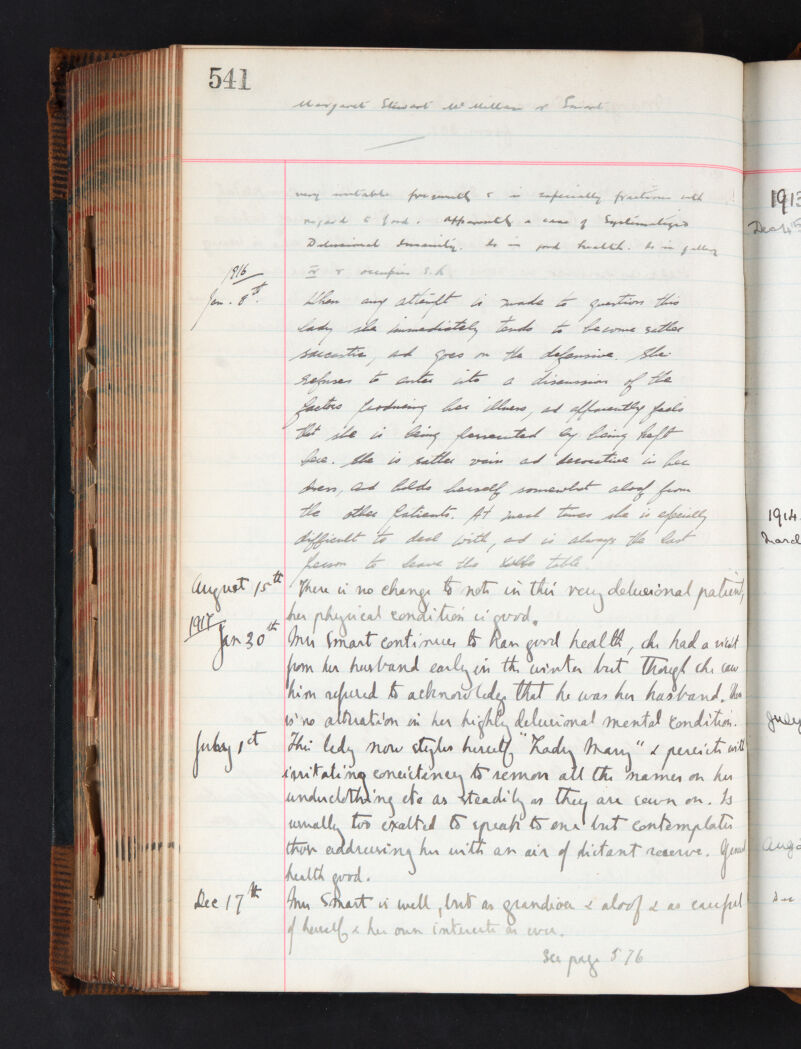 541
Margaret Stewart McMillan or Smart
very irritable frequently & is especially fractious with
regard to food. Apparently a case of Systematized
Delusional Insanity. Is in good health. Is in gallery
& occupies S.R.
1916
Jan. 8th. When any attempt is made to question this
lady she immediately tends to become rather
sarcastic, and goes on the defensive. She
refuses to enter into a discussion of the
factors producing her illness, and apparently feels
that she is being persecuted by being kept
here. She is rather vain and decorative in her
dress, and holds herself somewhat aloof from
the other patients. At meal times she is especially
difficult to deal with, and is always the last
person to leave the table
August 15th There is no change to note in this very delusional patient,
her physical condition is good.
1917
Jan 30th Mrs Smart continues to have good health, she had a visit
from her husband early in the winter but though she saw
him refused to acknowledge that he was her husband. There
is no alteration in her highly delusional mental condition.
July 1st This lady now styles herself "Lady Mary" & persists with
irritating consistency to remove all the names on her
underclothing etc as steadily as they are sewn on. Is
usually too exalted to speak to one but contemplates
those addressing her with an air of distant reserve. General
health good.
Dec 17th Mrs Smart is well, but as grandiose & aloof & as careful
of herself & her own interests as ever.
See page 576
1913
Dec 4th
1914.
March
July
Aug
Dec